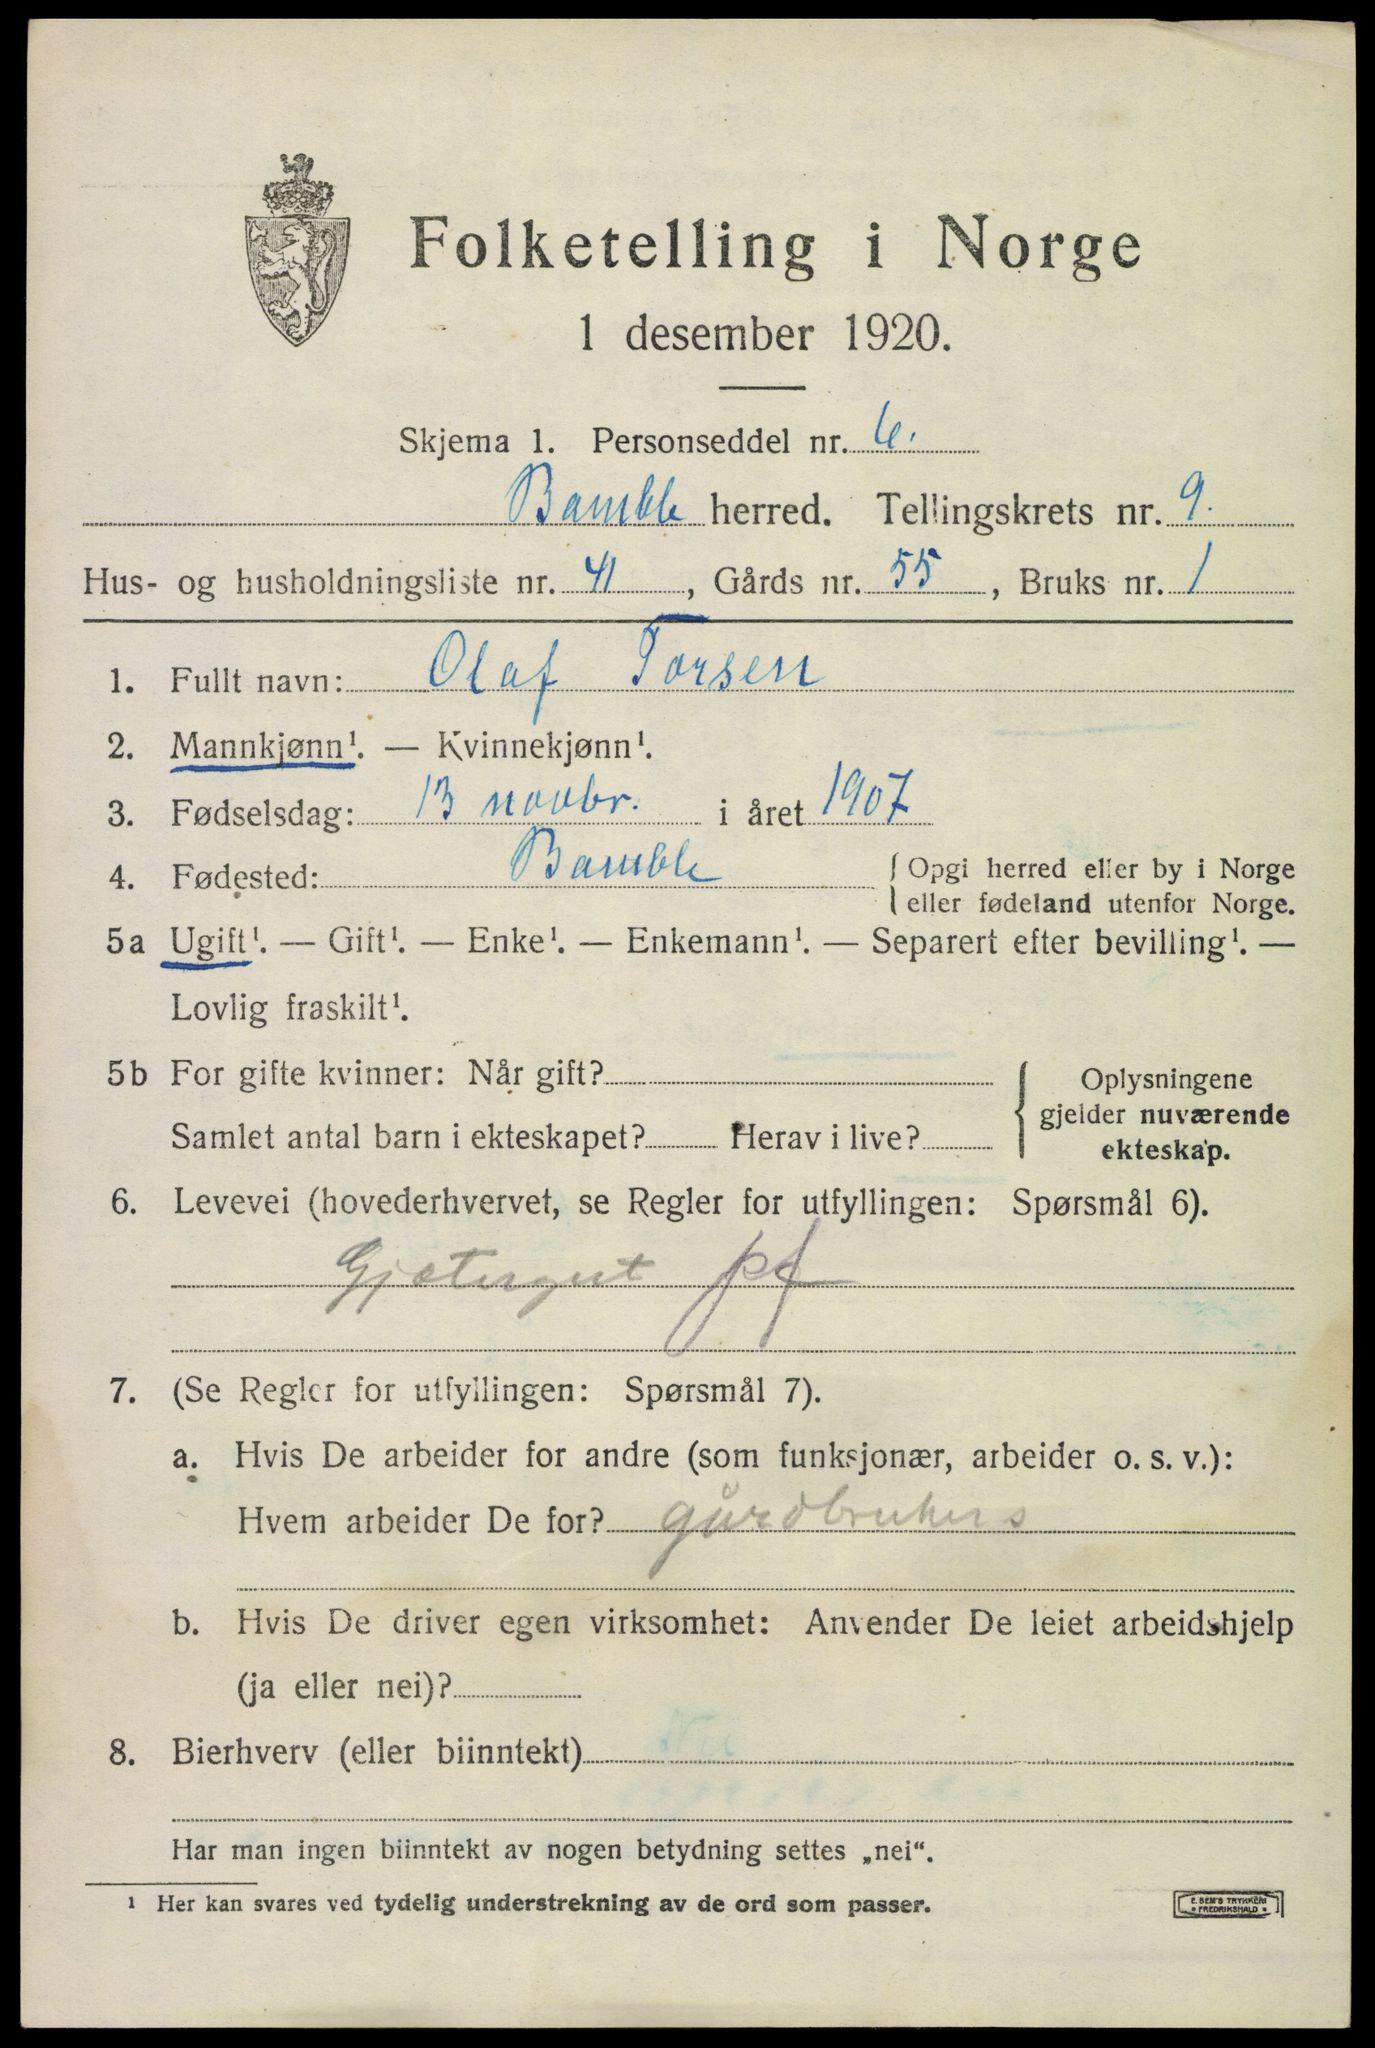 Folketelling i Norge
1 desember 1920.
Skjema 1. Personseddel nr. 6.
Bamble herred. Tellingskrets nr. 9.
Hus- og husholdningsliste nr. 41, Gårds nr. 55, Bruks nr. 1
1. Fullt navn: Olaf Torsen
2. Mannkjønn¹. — Kvinnekjønn¹.
3. Fødselsdag: 13 novbr. i året 1907
4. Fødested: Bamble { Opgi herred eller by i Norge
eller fødeland utenfor Norge.
5a Ugift¹. — Gift¹. — Enke¹. — Enkemann¹. — Separert efter bevilling¹. —
Lovlig fraskilt¹.
5b For gifte kvinner: Når gift?
Samlet antal barn i ekteskapet? Herav i live?
{ Oplysningene
gjelder nuværende
ekteskap.
6. Levevei (hovederhvervet, se Regler for utfyllingen: Spørsmål 6).
Gjætergut pf
7. (Se Regler for utfyllingen: Spørsmål 7).
a. Hvis De arbeider for andre (som funksjonær, arbeider o. s. v.):
Hvem arbeider De for? gårdbrukers
b. Hvis De driver egen virksomhet: Anvender De leiet arbeidshjelp
(ja eller nei)?
8. Bierhverv (eller biinntekt)
Har man ingen biinntekt av nogen betydning settes „nei“.
¹ Her kan svares ved tydelig understrekning av de ord som passer.
E. SEM'S TRYKKERI
FREDRIKSHALD